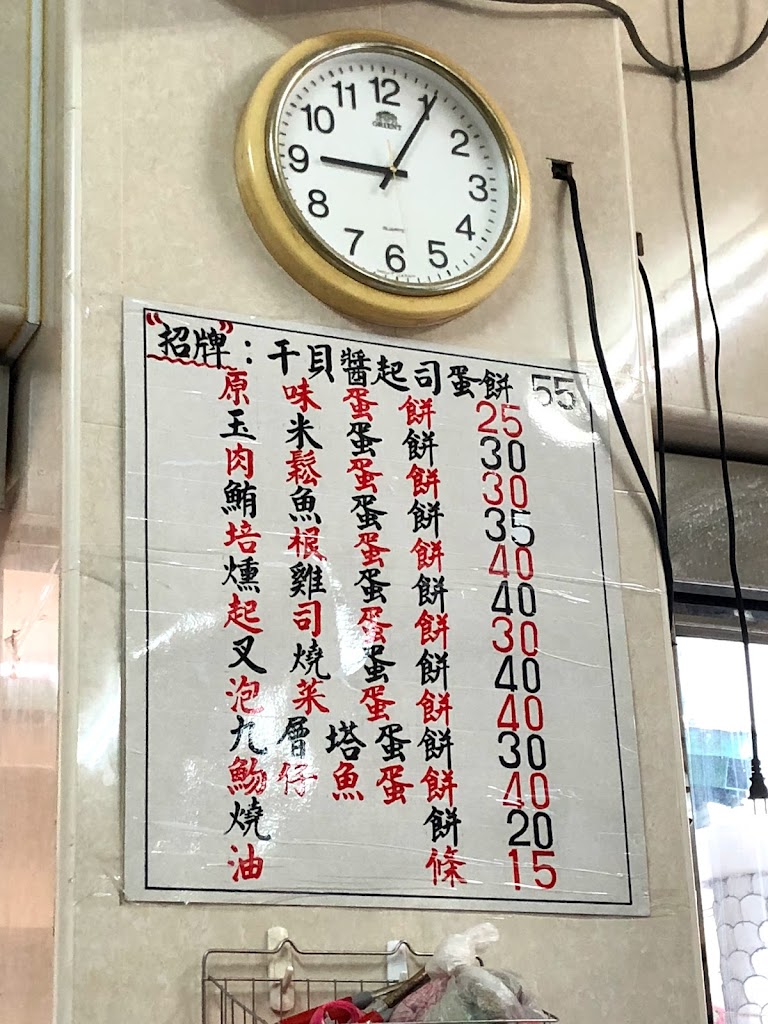 12
1
2
3
4
5
6
7
8
9
10
11
ORIENT
"招牌":干貝醬起司蛋餅 55
原味蛋餅 25
玉米蛋餅 30
肉鬆蛋餅 30
鮪魚蛋餅 35
培根蛋餅 40
燻雞蛋餅 40
起司蛋餅 30
叉燒蛋餅 40
泡菜蛋餅 40
九層塔蛋餅 30
魩仔魚蛋餅 40
燒餅 20
油條 15